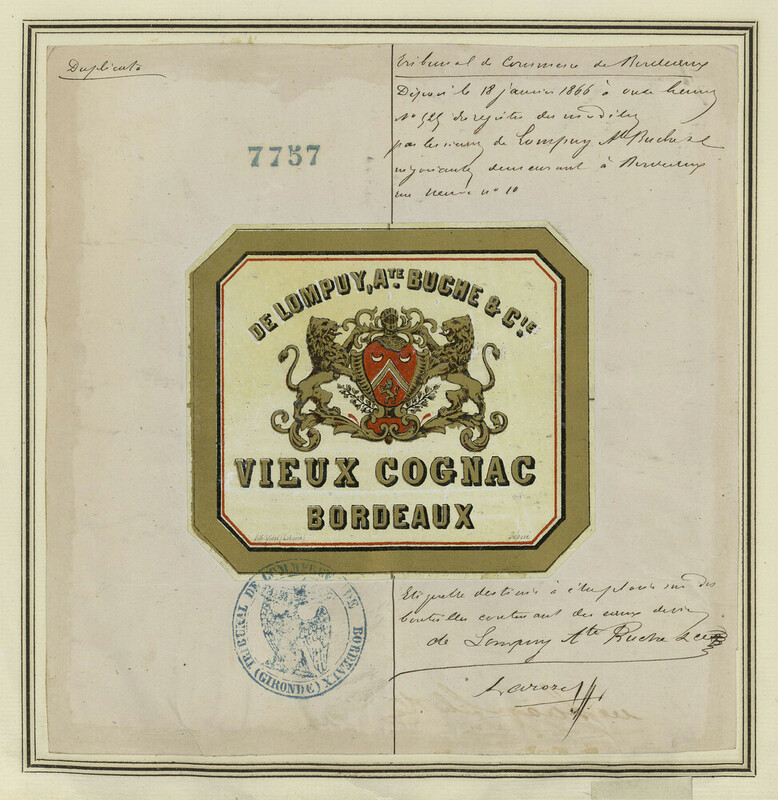 Duplicata
Tribunal de Commerce de Bordeaux
Déposé le 18 janvier 1866 à onze heures
No 525 du registre des modèles
par les sieurs de Lompuy Ate Buche &
négociants demeurant à Bordeaux
rue no 10
7757
DE LOMPUY, ATE BUCHE & CIE
VIEUX COGNAC
BORDEAUX
Déposé
TRIBUNAL DE COMMERCE DE BORDEAUX
(GIRONDE)
Etiquette destinée à être employée sur des
bouteilles contenant des eaux de vie
de Lompuy Ate Buche & cie